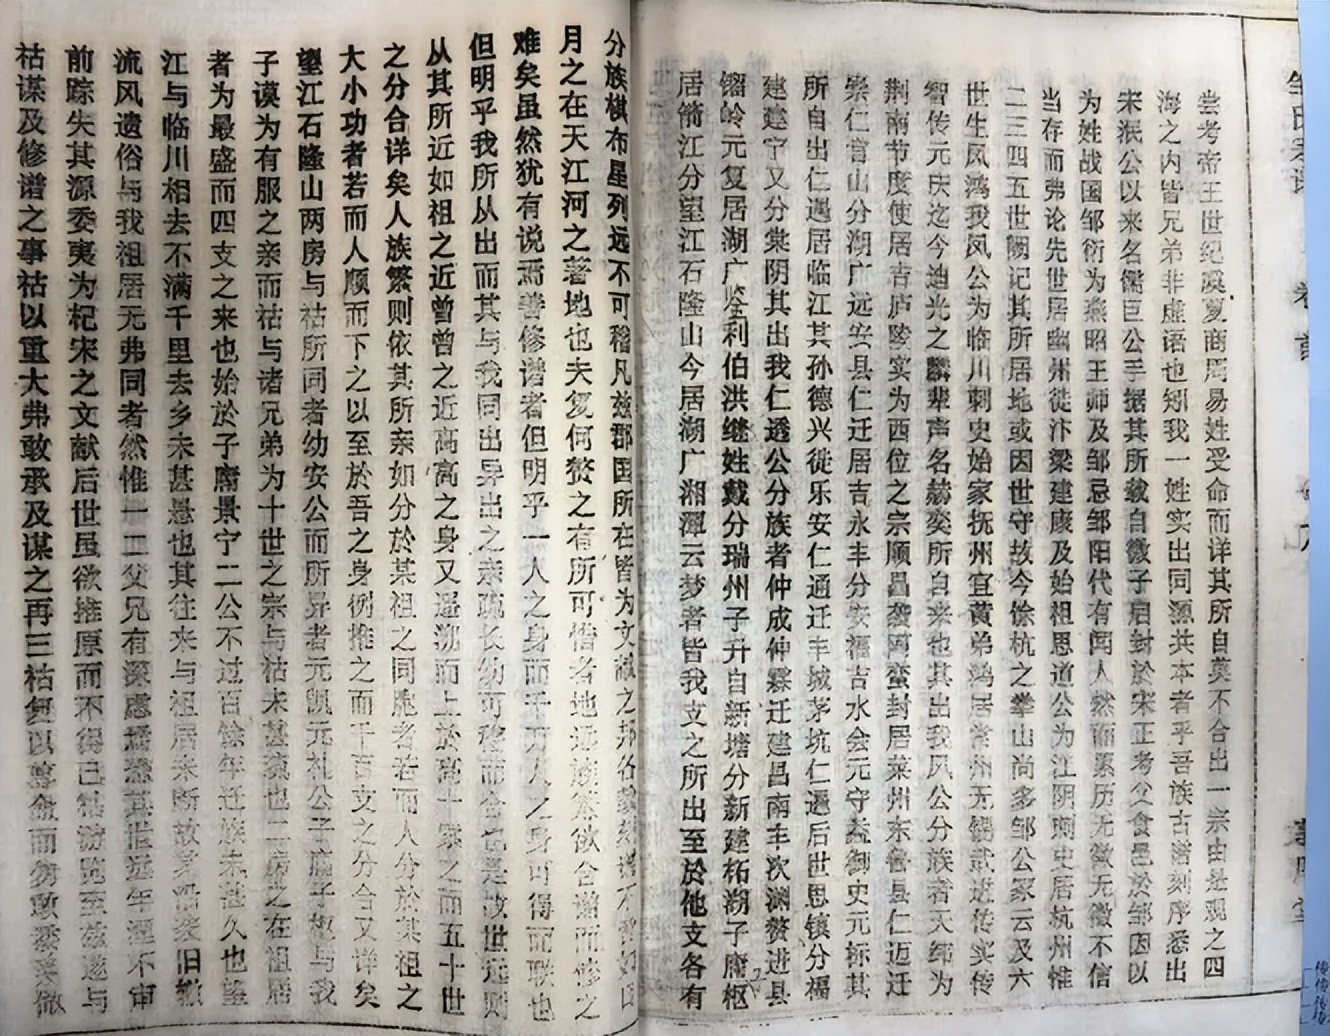 尝考帝王世纪虞夏商周易姓受命而详其所自莫不合出一宗由是观之四
海之内皆兄弟非虚语也矧我一姓实出同源共本者乎吾族古谱刻序悉出
宋泯公以来名儒巨公手据其所载自微子启封於宋正考父食邑於邹因以
为姓战国邹衍为燕昭王师及邹忌邹阳代有闻人然而累历无徵无徵不信
当存而弗论先世居幽州徙汴梁建康及始祖思道公为江阴刺史居杭州惟
二三四五世阙记其所居地或因世守故今馀杭之拳山尚多邹公家云及六
世生凤鸿我凤公为临川刺史始家抚州宜黄弟鸿居常州无锡武进传实传
智传元庆迄今迪光之麟辈声名赫奕所自来也其出我风公分族者天纬为
荆南节度使居吉庐陵实为西位之宗顺昌袭网蛮封居莱州东鲁县仁迈迁
崇仁官山分湖广远安县仁迁居吉永丰分安福吉水会元守益御史元标其
所自出仁遇居临江其孙德兴徙乐安仁通迁丰城茅坑仁遏后世思镇分福
建建宁又分棠阴其出我仁透公分族者仲成仲霖迁建昌南丰次渊赘进县
镏岭元复居湖广鉴利伯洪继姓戴分瑞州子升自新塘分新建柘湖子庸枢
居箭江分望江石隆山今居湖广湘潭云梦者皆我支之所出至於他支各有
分族棋布星列远不可稽凡兹郡国所在皆为文献之邦各
月之在天江河之著地也夫复何赘之有所可惜者地远族繁欲合谱而修之
难矣虽然犹有说焉善修谱者但明乎一人之身而千万人之身可得而联也
但明乎我所从出而其与我同出异出之亲疏长幼可稽而合也是故世远则
从其所近如祖之近曾曾之近高高之身又遥溯而上於高十世之而五十世
之分合详矣人族繁则依其所亲如分於某祖之同胞者若而人分於某祖之
大小功者若而人顺而下之以至於吾之身例推之而千百支之分合又详矣
望江石隆山两房与祜所同者幼安公而所异者元凯元礼公子庸子枢与我
子谟为有服之亲而祜与诸兄弟为十世之宗与祜未甚疏也二房之在祖居
者为最盛而四支之来也始於子庸景宁二公不过百馀年迁族未甚久也望
江与临川相去不满千里去乡未甚悬也其往来与祖居未断故
流风遗俗与我祖居无弗同者然惟一二父兄有深虑焉恐其世远年湮不审
前踪失其源委夷为杞宋之文献后世虽欲推原而不得已祜游览至兹遂与
祜谋及修谱之事祜以重大弗敢承及谋之再三祜复以